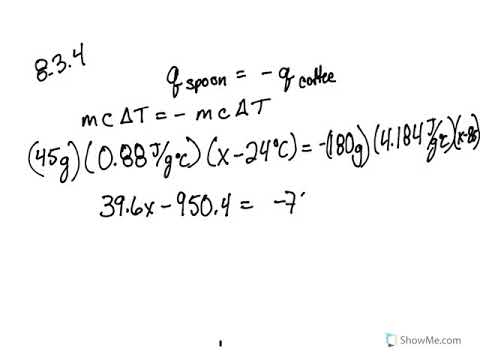 8.3.4
q spoon = - q coffee
mCΔT = - mCΔT
(45g)(0.88 J/g°C)(x-24°C) = -(180g)(4.184 J/g°C)(x-85)
39.6x - 950.4 = -7
ShowMe.com